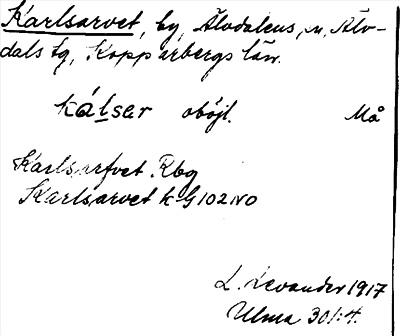 Karlsarvet, by, Älvdalens sn, Älv-
dals tg, Kopparbergs län.
kálsar oböjl. Må
Karlsarfvet. Rbg
Karlsarvet k G 102 NO
L. Levander 1917
Ulma 301:4.